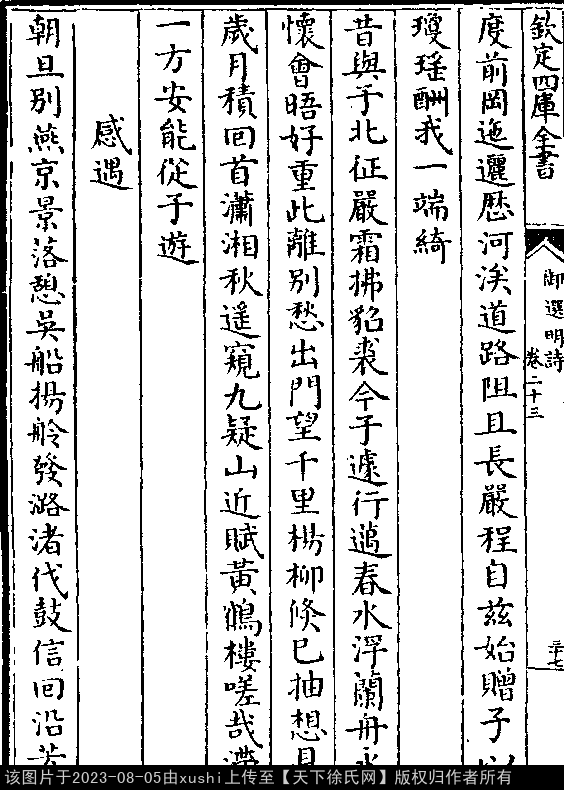 欽定四庫全書
御選明詩
卷二十三
三十七
度前岡迤邐歷河涘道路阻且長嚴程自茲始贈子以
瓊瑤酬我一端綺
昔與子北征嚴霜拂貂裘今子遽行邁春水浮蘭舟永
懷會晤好重此離別愁出門望千里楊柳倏已抽想見
歲月積回首瀟湘秋遙窺九疑山近賦黃鶴樓嗟哉滯
一方安能從子遊
感遇
朝旦別燕京景落憩吳船揚舲發潞渚代鼓信回沿芳
该图片于2023-08-05由xushi上传至【天下徐氏网】版权归作者所有